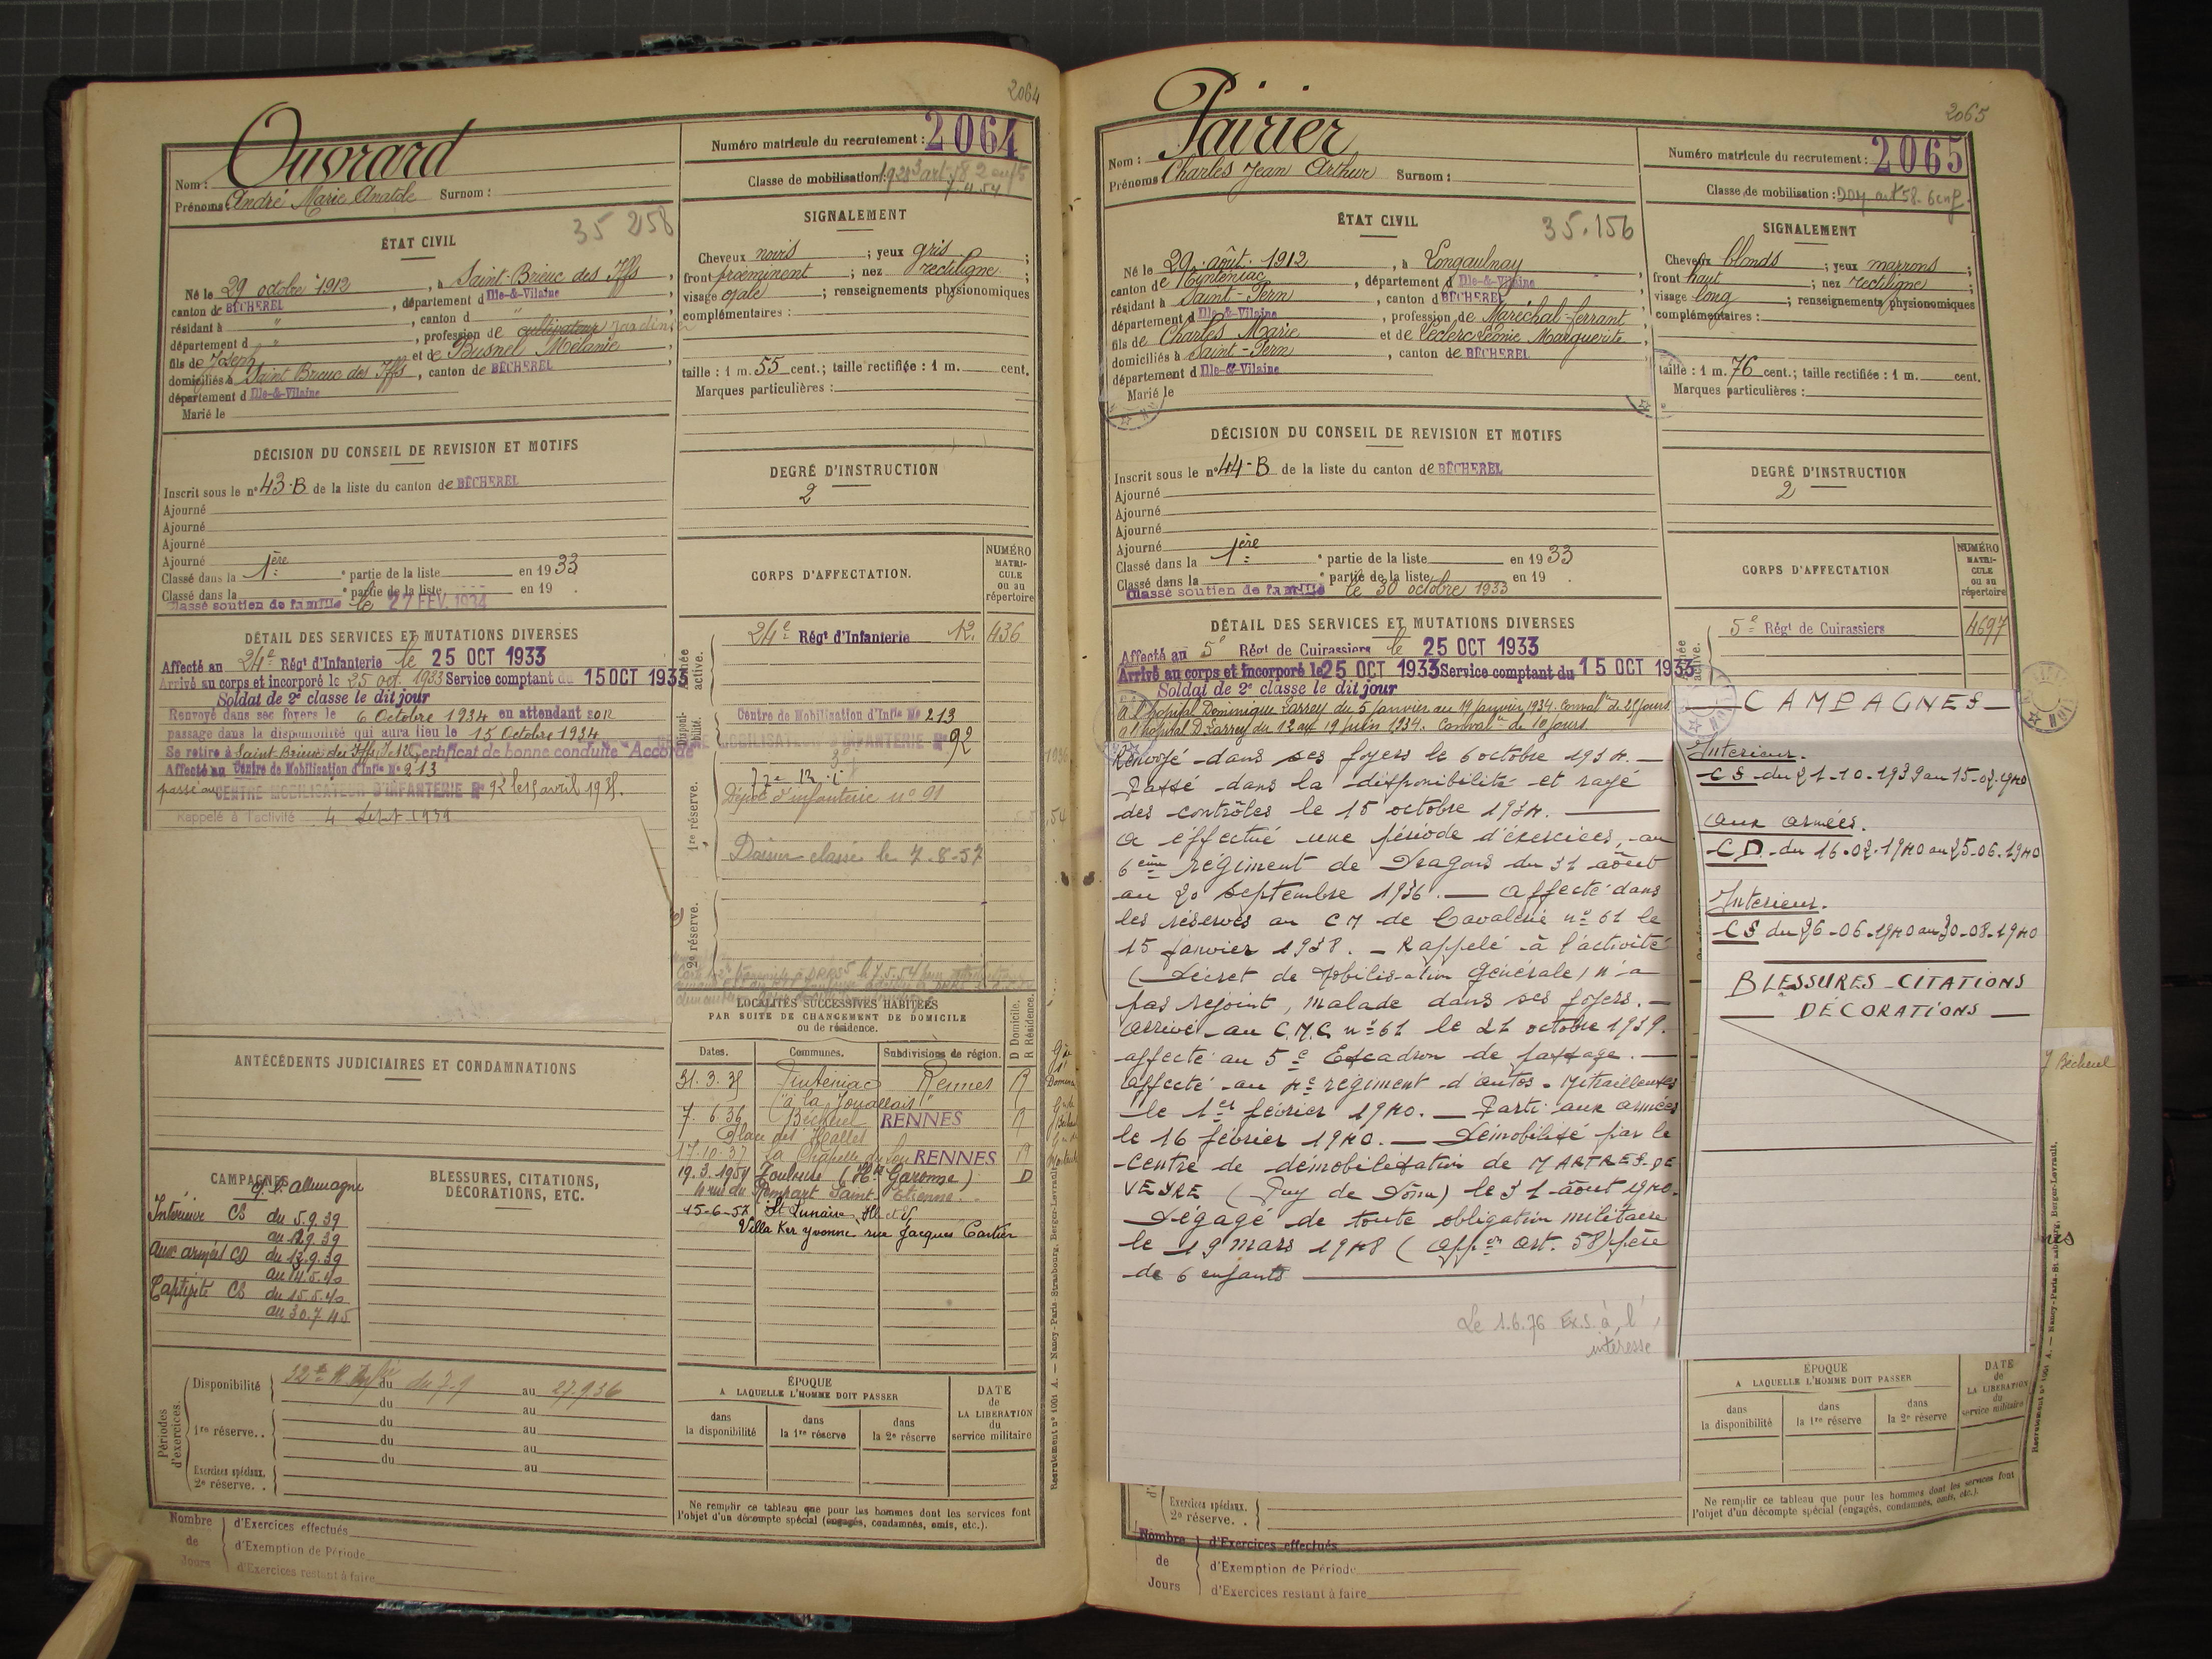 2064
Ouvrard
Nom :
Prénoms : André Marie Anatole Surnom :
Numéro matricule du recrutement : 2064
Classe de mobilisation :
ÉTAT CIVIL
35 258
Né le 29 octobre 1912, à Saint-Brieuc des Iffs,
canton de BÉCHEREL, département d Ille-&-Vilaine
résidant à ", canton d "
département d ", profession de cultivateur jardinier
fils de Joseph et de Busnel Mélanie
domiciliés à Saint Brieuc des Iffs, canton de BÉCHEREL
département d Ille-&-Vilaine
Marié le
SIGNALEMENT
Cheveux noirs ; yeux gris ;
front proeminent ; nez rectiligne ;
visage ovale ; renseignements physionomiques
complémentaires :
taille : 1 m. 55 cent.; taille rectifiée : 1 m. cent.
Marques particulières :
DÉCISION DU CONSEIL DE REVISION ET MOTIFS
Inscrit sous le n° 43-B de la liste du canton de BÉCHEREL
Ajourné
Ajourné
Ajourné
Ajourné
Classé dans la 1ère partie de la liste en 1933
Classé dans la partie de la liste en 19 .
Classé soutien de famille le 27 FEV. 1934
DEGRÉ D'INSTRUCTION
2
DÉTAIL DES SERVICES ET MUTATIONS DIVERSES
Affecté au 24e Régt d'Infanterie le 25 OCT 1933
Arrivé au corps et incorporé le 25 oct. 1933 Service comptant du 15 OCT 1933
Soldat de 2e classe le dit jour
Renvoyé dans ses foyers le 6 Octobre 1934 en attendant son
passage dans la disponibilité qui aura lieu le 15 Octobre 1934
Se retire à Saint-Brieuc des Iffs Certificat de bonne conduite "Accordé"
Affecté au Centre de Mobilisation d'Infie No 213
passé au CENTRE MOBILISATEUR D'INFANTERIE No 92 le 15 avril 1935.
Rappelé à l'activité 4 Sept 1939
CORPS D'AFFECTATION.
NUMÉRO MATRICULE ou au répertoire
Armée active.
24e Régt d'Infanterie 436
Disponibilité.
Centre de Mobilisation d'Infie No 213
MOBILISATEUR D'INFANTERIE No 92
1re réserve.
Dépôt d'infanterie n° 91
classé le 7-8-57
2e réserve.
LOCALITÉS SUCCESSIVES HABITÉES
PAR SUITE DE CHANGEMENT DE DOMICILE
ou de résidence.
D Domicile. R Résidence.
Dates. Communes. Subdivisions de région.
31. 3. 35 Tinténiac Rennes R
7. 6. 36 Bécherel RENNES R
Place des Halles
17.10.37 la Chapelle du Lou RENNES R
19.3.1954 Toulouse (Hte Garonne) D
rue du Rempart Saint Etienne
15-6-57 St Lunaire Ille et V
Villa Ker Yvonne rue Jacques Cartier
ANTÉCÉDENTS JUDICIAIRES ET CONDAMNATIONS
CAMPAGNES
allemagne
Intérieur CS du 5.9.39
au 12.9.39
aux armées CD du 13.9.39
au 14.5.40
Captivité CS du 15.5.40
au 30.7.45
BLESSURES, CITATIONS,
DÉCORATIONS, ETC.
Périodes d'exercices.
Disponibilité du 7.9 au 27.9.36
du au
1re réserve.. du au
du au
du au
Exercices spéciaux.
2e réserve. .
ÉPOQUE
A LAQUELLE L'HOMME DOIT PASSER
dans la disponibilité
dans la 1re réserve
dans la 2e réserve
DATE de LA LIBÉRATION du service militaire
Ne remplir ce tableau que pour les hommes dont les services font
l'objet d'un décompte spécial (engagés, condamnés, omis, etc.).
Nombre de Jours
d'Exercices effectués
d'Exemption de Période
d'Exercices restant à faire
Recrutement n° 1001 A. — Nancy-Paris-Strasbourg, Berger-Levrault.
2065
Poirier
Nom :
Prénoms : Charles Jean Arthur Surnom :
Numéro matricule du recrutement : 2065
Classe de mobilisation : art 58. 6 enf.
ÉTAT CIVIL
35.156
Né le 29 août 1912, à Longaulnay
canton de Tinténiac, département d Ille-&-Vilaine
résidant à Saint-Pern, canton d BÉCHEREL
département d Ille-&-Vilaine, profession de Maréchal-ferrant
fils de Charles Marie et de Leclerc Léonie Marguerite
domiciliés à Saint-Pern, canton de BÉCHEREL
département d Ille-&-Vilaine
Marié le
SIGNALEMENT
Cheveux blonds ; yeux marrons ;
front haut ; nez rectiligne ;
visage long ; renseignements physionomiques
complémentaires :
taille : 1 m. 76 cent.; taille rectifiée : 1 m. cent.
Marques particulières :
DÉCISION DU CONSEIL DE REVISION ET MOTIFS
Inscrit sous le n° 44-B de la liste du canton de BÉCHEREL
Ajourné
Ajourné
Ajourné
Ajourné
Classé dans la 1ère partie de la liste en 1933
Classé dans la partie de la liste en 19 .
Classé soutien de famille le 30 octobre 1933
DEGRÉ D'INSTRUCTION
2
CORPS D'AFFECTATION
NUMÉRO MATRICULE ou au répertoire
5e Régt de Cuirassiers 4697
DÉTAIL DES SERVICES ET MUTATIONS DIVERSES
Affecté au 5e Régt de Cuirassiers le 25 OCT 1933
Arrivé au corps et incorporé le 25 OCT 1933 Service comptant du 15 OCT 1933
Soldat de 2e classe le dit jour
à l'hôpital Dominique Larrey du 5 janvier au 19 janvier 1934. Conval de 25 jours
à l'hôpital D. Larrey du 12 au 19 juin 1934. Conval de 10 jours.
Renvoyé dans ses foyers le 6 octobre 1934. —
Passé dans la disponibilité et rayé
des contrôles le 15 octobre 1934. —
a effectué une période d'exercices, au
6ème régiment de Dragons du 31 août
au 20 septembre 1936. — affecté dans
les réserves au CM de Cavalerie n° 61 le
15 janvier 1938. — Rappelé à l'activité
(Décret de mobilisation générale) n'a
pas rejoint, malade dans ses foyers. —
arrivé au C.M.C. n° 61 le 21 octobre 1939.
affecté au 5e Escadron de passage. —
affecté au 4e régiment d'autos-mitrailleuses
le 1er février 1940. — Parti aux armées
le 16 février 1940. — Démobilisé par le
centre de démobilisation de MARTRES-DE
VEYRE (Puy de Dôme) le 31 août 1940.
Dégagé de toute obligation militaire
le 19 mars 1948 (appon art. 58) père
de 6 enfants —
Le 1.6.76 Ex.S. à l'
intéressé
— CAMPAGNES —
Intérieur.
CS du 21-10-1939 au 15-02-1940
aux armées.
CD du 16-02-1940 au 25-06-1940
Intérieur.
CS du 26-06-1940 au 30-08-1940
BLESSURES-CITATIONS
— DÉCORATIONS —
Bécherel
ÉPOQUE
A LAQUELLE L'HOMME DOIT PASSER
dans la disponibilité
dans la 1re réserve
dans la 2e réserve
DATE de LA LIBÉRATION du service militaire
Exercices spéciaux.
2e réserve. .
Ne remplir ce tableau que pour les hommes dont les services font
l'objet d'un décompte spécial (engagés, condamnés, omis, etc.).
Nombre de Jours
d'Exercices effectués
d'Exemption de Période
d'Exercices restant à faire
Recrutement n° 1001 A. — Nancy-Paris-Strasbourg, Berger-Levrault.